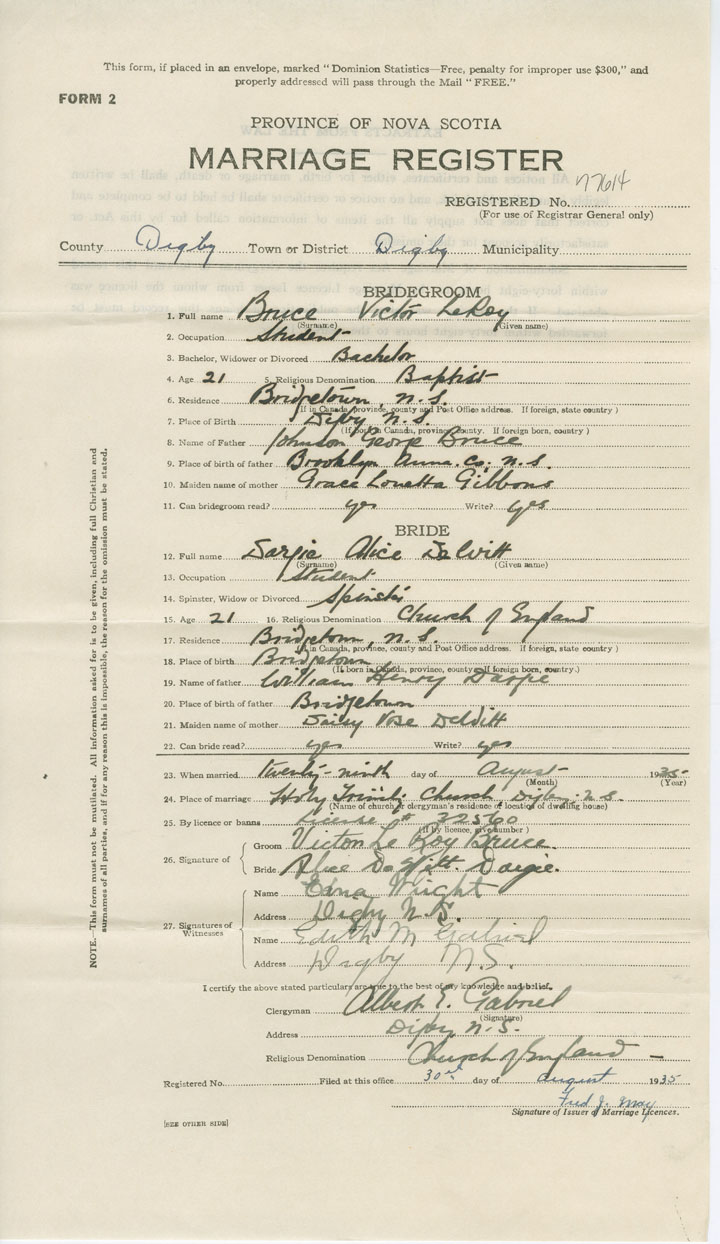 This form, if placed in an envelope, marked "Dominion Statistics—Free, penalty for improper use $300," and
properly addressed will pass through the Mail "FREE."
FORM 2
PROVINCE OF NOVA SCOTIA
MARRIAGE REGISTER
REGISTERED No.
(For use of Registrar General only)
County Digby Town or District Digby Municipality
BRIDEGROOM
1. Full name Bruce Victor LeRoy
(Surname) (Given name)
2. Occupation Student
3. Bachelor, Widower or Divorced Bachelor
4. Age 21 5. Religious Denomination Baptist
6. Residence Bridgetown, N.S.
(If in Canada, province, county and Post Office address. If foreign, state country)
7. Place of Birth Digby N.S.
(If born in Canada, province, county. If foreign born, country)
8. Name of Father Johnson George Bruce
9. Place of birth of father Brooklyn Anna. Co; N.S.
10. Maiden name of mother Grace Louetta Gibbons
11. Can bridegroom read? yes Write? yes
BRIDE
12. Full name Dargie Alice DeWitt
(Surname) (Given name)
13. Occupation Student
14. Spinster, Widow or Divorced Spinster
15. Age 21 16. Religious Denomination Church of England
17. Residence Bridgetown, N.S.
(If in Canada, province, county and Post Office address. If foreign, state country)
18. Place of birth Bridgetown
(If born in Canada, province, county. If foreign born, country.)
19. Name of father William Henry Dargie
20. Place of birth of father Bridgetown
21. Maiden name of mother Vose DeWitt
22. Can bride read? yes Write? yes
23. When married twenty-ninth day of August 1935
(Month) (Year)
24. Place of marriage Holy Trinity Church, Digby, N.S.
(Name of church or clergyman's residence or location of dwelling house)
25. By licence or banns License # 32560
(If by licence, give number)
26. Signature of
Groom Victor Le Roy Bruce
Bride Alice DeWitt Dargie.
27. Signatures of Witnesses
Name Edna Wright
Address Digby N.S.
Name Edith M Gabriel
Address Digby N.S.
I certify the above stated particulars are true to the best of my knowledge and belief.
Clergyman Albert E. Gabriel
(Signature)
Address Digby N.S.
Religious Denomination Church of England —
Registered No. Filed at this office 30th day of August 1935
Fred J. May
Signature of Issuer of Marriage Licences.
[SEE OTHER SIDE]
NOTE.—This form must not be mutilated. All information asked for is to be given, including full Christian and
surnames of all parties, and if for any reason this is impossible, the reason for the omission must be stated.